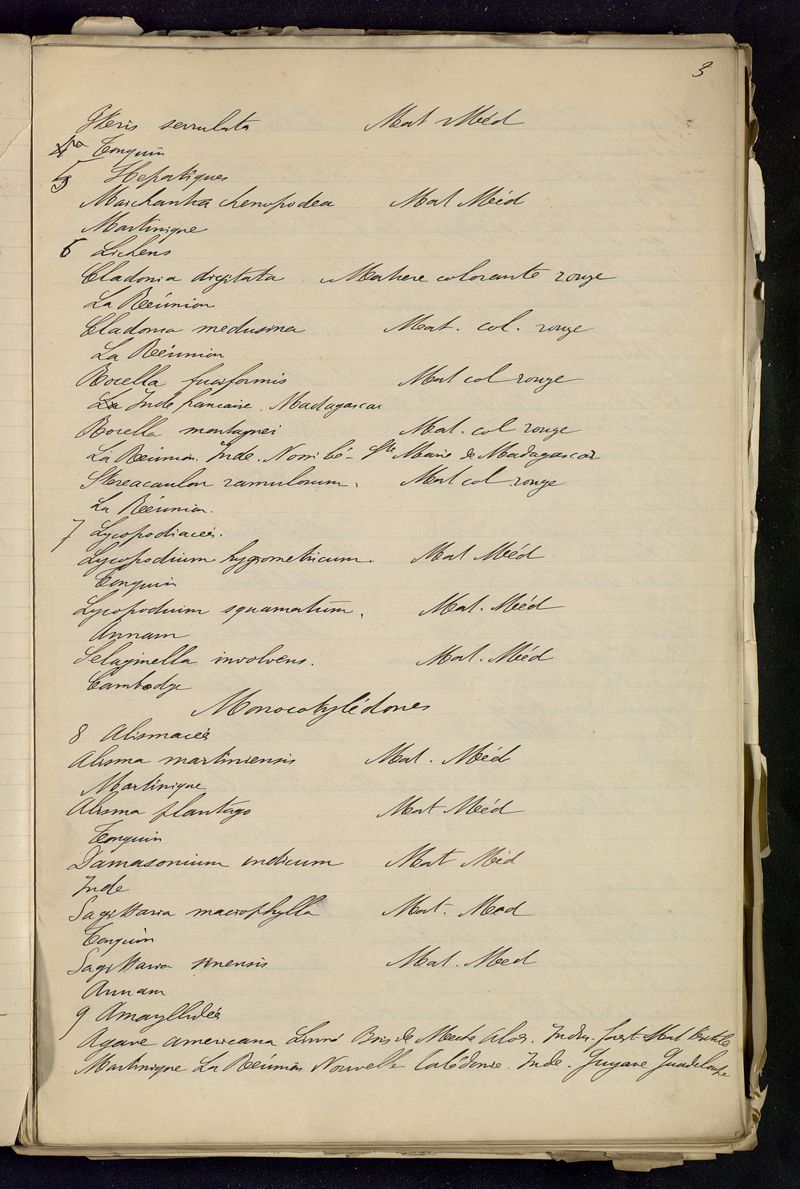 3
Pteris serrulata Mat Méd
Tonquin
5 Hepatiques
Marchantia chenopodea Mat Méd
Martinique
6 Lichens
Cladonia digitata Matiere colorante rouge
La Réunion
Cladonia medusina Mat. col. rouge
La Réunion
Rocella fuciformis Mat col rouge
Inde francaise. Madagascar
Rocella montagnei Mat. col rouge
La Réunion. Inde. Nossi bé - Ste Marie de Madagascar
Stereacaulon ramulorum. Mat col rouge
La Réunion.
7 Lycopodiacées.
Lycopodium hygrometricum. Mat Méd
Tonquin
Lycopodium squamatum. Mat. Méd
Annam
Selaginella involvens. Mat. Méd
Cambodge
Monocotylédones
8 Alismacées
Alisma martiniensis Mat. Méd
Martinique
Alisma plantago Mat Méd
Tonquin
Damasonium indicum Mat Méd
Inde
Sagittaria macrophylla Mat. Med
Tonquin
Sagittaria sinensis Mat. Med
Annam
9 Amaryllidés
Agave americana Linné Bois de Meche Aloès. Indus. forest. Mat textiles
Martinique La Réunion Nouvelle Calédonie. Inde. Guyane Guadeloupe